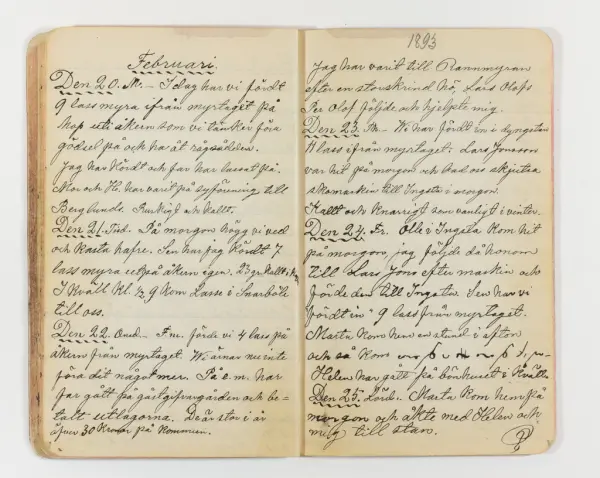 Februari.
Den 20. M. – Idag har vi fördt
9 lass myra ifrån myrtaget på
hop uti åkern som vi tänker föra
gödsel på och ha åt rågsädden.
Jag har kördt och far har lassat på.
Mor och H. har varit på syförening till
Berglunds. Ruskigt och kallt.
Den 21. Tisd. På morgon högg vi ved
och kasta hafre. Sen har jag kördt 7
lass myra utpå åkern igen. 23 gr. kallt i
I kväll kl. ½ 9 kom Lasse i Snarböle
till oss.
Den 22. Onsd. – F.m. förde vi 4 lass på
åkern från myrtaget. Wi ärnar nu inte
föra dit något mer. På e.m. har
far gått på gästgifvargården och be-
talt utlagorna. De är stor i år
äfver 30 Kronor på kommun.
1893
Jag har varit till Rannmyran
efter en storskrind hö, Lars Olofs
Per Olof följde och hjelpte mig.
Den 23. Th. – Wi har fördt in i dyngstan
11 lass ifrån myrtaget. Lars Jonsson
var hit på morgon och bad oss skjutsa
skomaskin till Ingsta i morgon.
Kallt och knarrigt som vanligt i vinter.
Den 24. Fr. Olle i Ingsta kom hit
på morgon, jag följde då honom
till Lars Jons efter maskin och
förde den till Ingsta. Sen har vi
"fördt in" 9 lass från myrtaget.
Marta kom hem en stund i afton
och så kom
Helen har gått på bönhuset i kväll.
Den 25. Lörd. Marta kom hem på
morgon och åkte med Helen och
mig till stan.